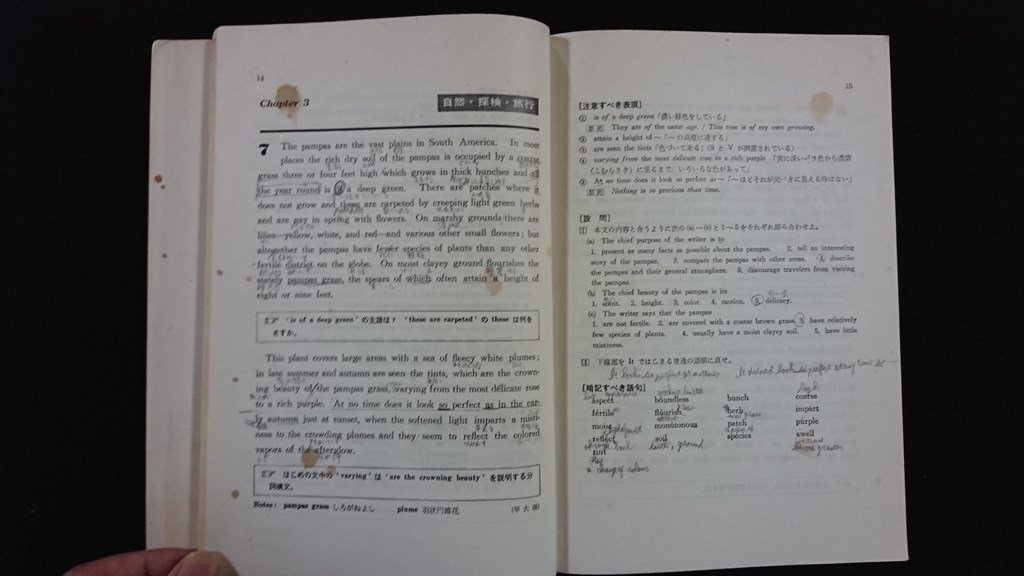 14
Chapter 3
自然・探検・旅行
7 The pampas are the vast plains in South America. In most
places the rich dry soil of the pampas is occupied by a coarse
grass three or four feet high which grows in thick bunches and all
the year round is of a deep green. There are patches where it
does not grow and these are carpeted by creeping light green herbs
and are gay in spring with flowers. On marshy grounds there are
lilies—yellow, white, and red—and various other small flowers; but
altogether the pampas have fewer species of plants than any other
fertile district on the globe. On moist clayey ground flourishes the
stately pampas grass, the spears of which often attain a height of
eight or nine feet.
☞ 'is of a deep green' の主語は? 'these are carpeted' の these は何を
さすか。
This plant covers large areas with a sea of fleecy white plumes;
in late summer and autumn are seen the tints, which are the crown-
ing beauty of the pampas grass, varying from the most delicate rose
to a rich purple. At no time does it look so perfect as in the ear-
ly autumn just at sunset, when the softened light imparts a misti-
ness to the crowding plumes and they seem to reflect the colored
vapors of the afterglow.
☞ はじめの文中の 'varying' は 'are the crowning beauty' を説明する分
詞構文。
Notes: pampas grass しろがねよし plume 羽状円錐花
15
[注意すべき表現]
① is of a deep green 「濃い緑色をしている」
They are of the same age. / This rose is of my own growing.
② attain a height of ~ 「~の高度に達する」
③ are seen the tints 「色づいて来る」(S と V が倒置されている)
④ varying from the most delicate rose to a rich purple 「実に淡いバラ色から濃紫
(こむらさき) に至るまで、いろいろな色があって」
⑤ At no time does it look so perfect as ~ 「~ほどそれが完ぺきに見える時はない」
Nothing is so precious than time.
[設 問]
[1] 本文の内容と合うように次の (a)~(c) と 1~5 をそれぞれ組み合わせよ。
(a) The chief purpose of the writer is to
1. present as many facts as possible about the pampas. 2. tell an interesting
story of the pampas. 3. compare the pampas with other areas. 4. describe
the pampas and their general atmosphere. 5. discourage travelers from visiting
the pampas.
(b) The chief beauty of the pampas is its
1. scent. 2. height. 3. color. 4. motion. 5. delicacy.
(c) The writer says that the pampas
1. are not fertile. 2. are covered with a coarse brown grass. 3. have relatively
few species of plants. 4. usually have a moist clayey soil. 5. have little
mistiness.
下線部を It ではじまる普通の語順に直せ。
[暗記すべき語句]
aspect bóundless bunch coarse
fértile flóurish herb impárt
moist monótonous patch púrple
refléct soil spécies swell
tint earth, ground